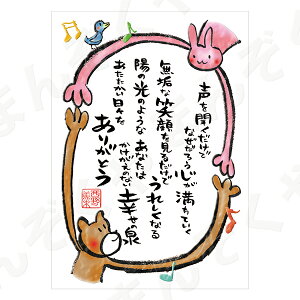 声を聞くだけで
なぜだろう心が満ちていく
無垢な笑顔を見るだけで
うれしくなる
陽の光のような あなたは
かけがえのない 幸せの泉
あたたかい日々を
ありがとう